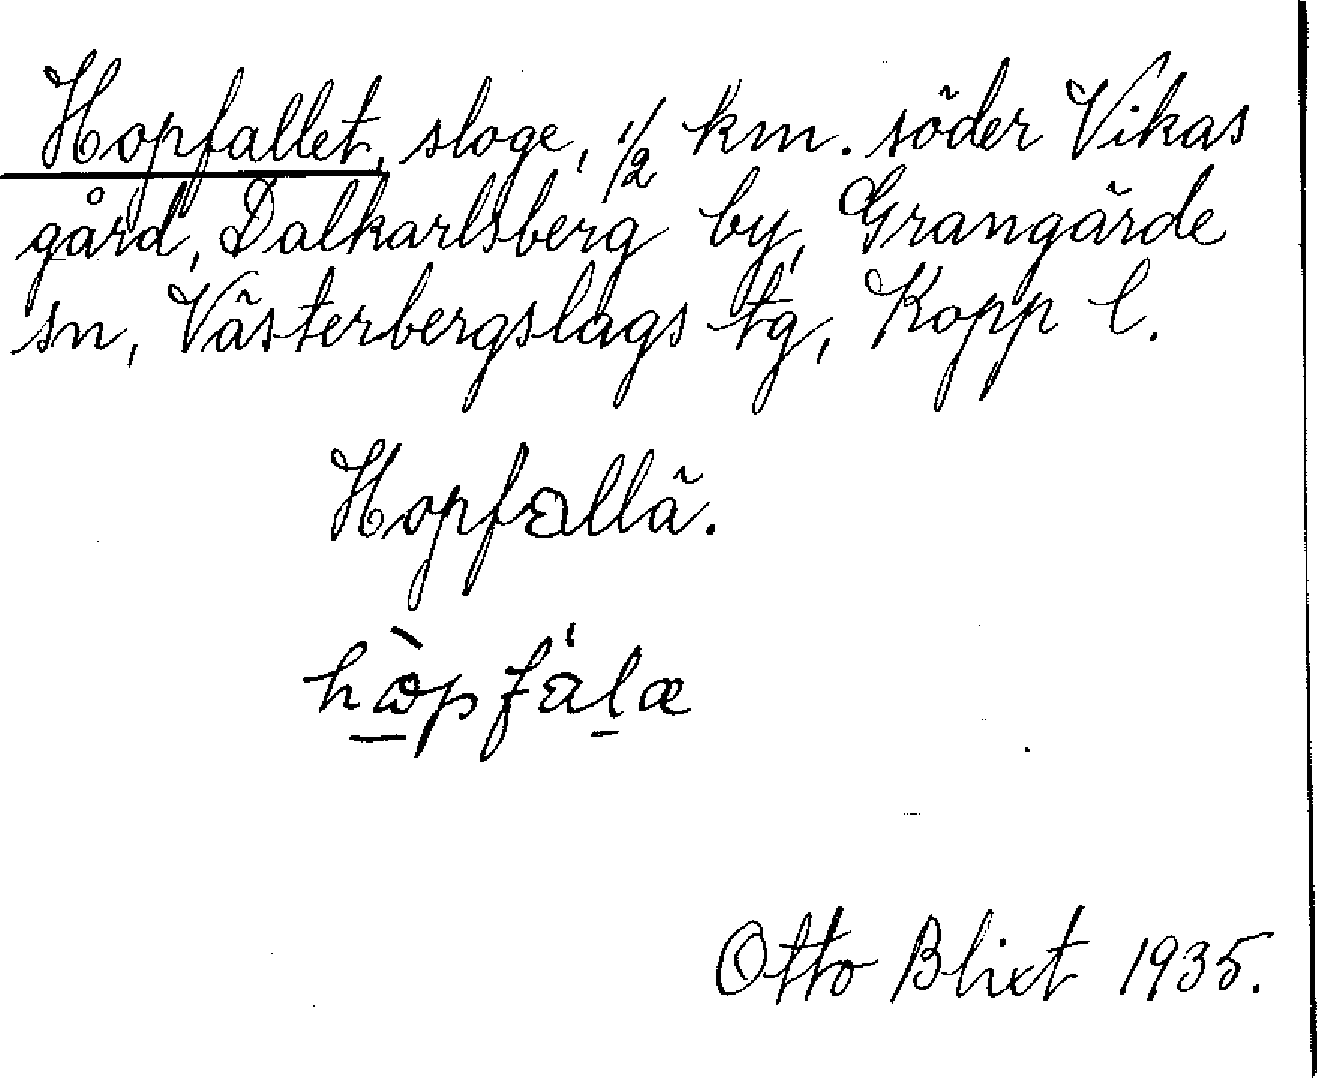 Hopfallet, sloge, 1/2 km. söder Vikas
gård, Dalkarlsberg by, Grangärde
sn, Västerbergslags tg, Kopp l.
Hopfallä.
Otto Blixt 1935.